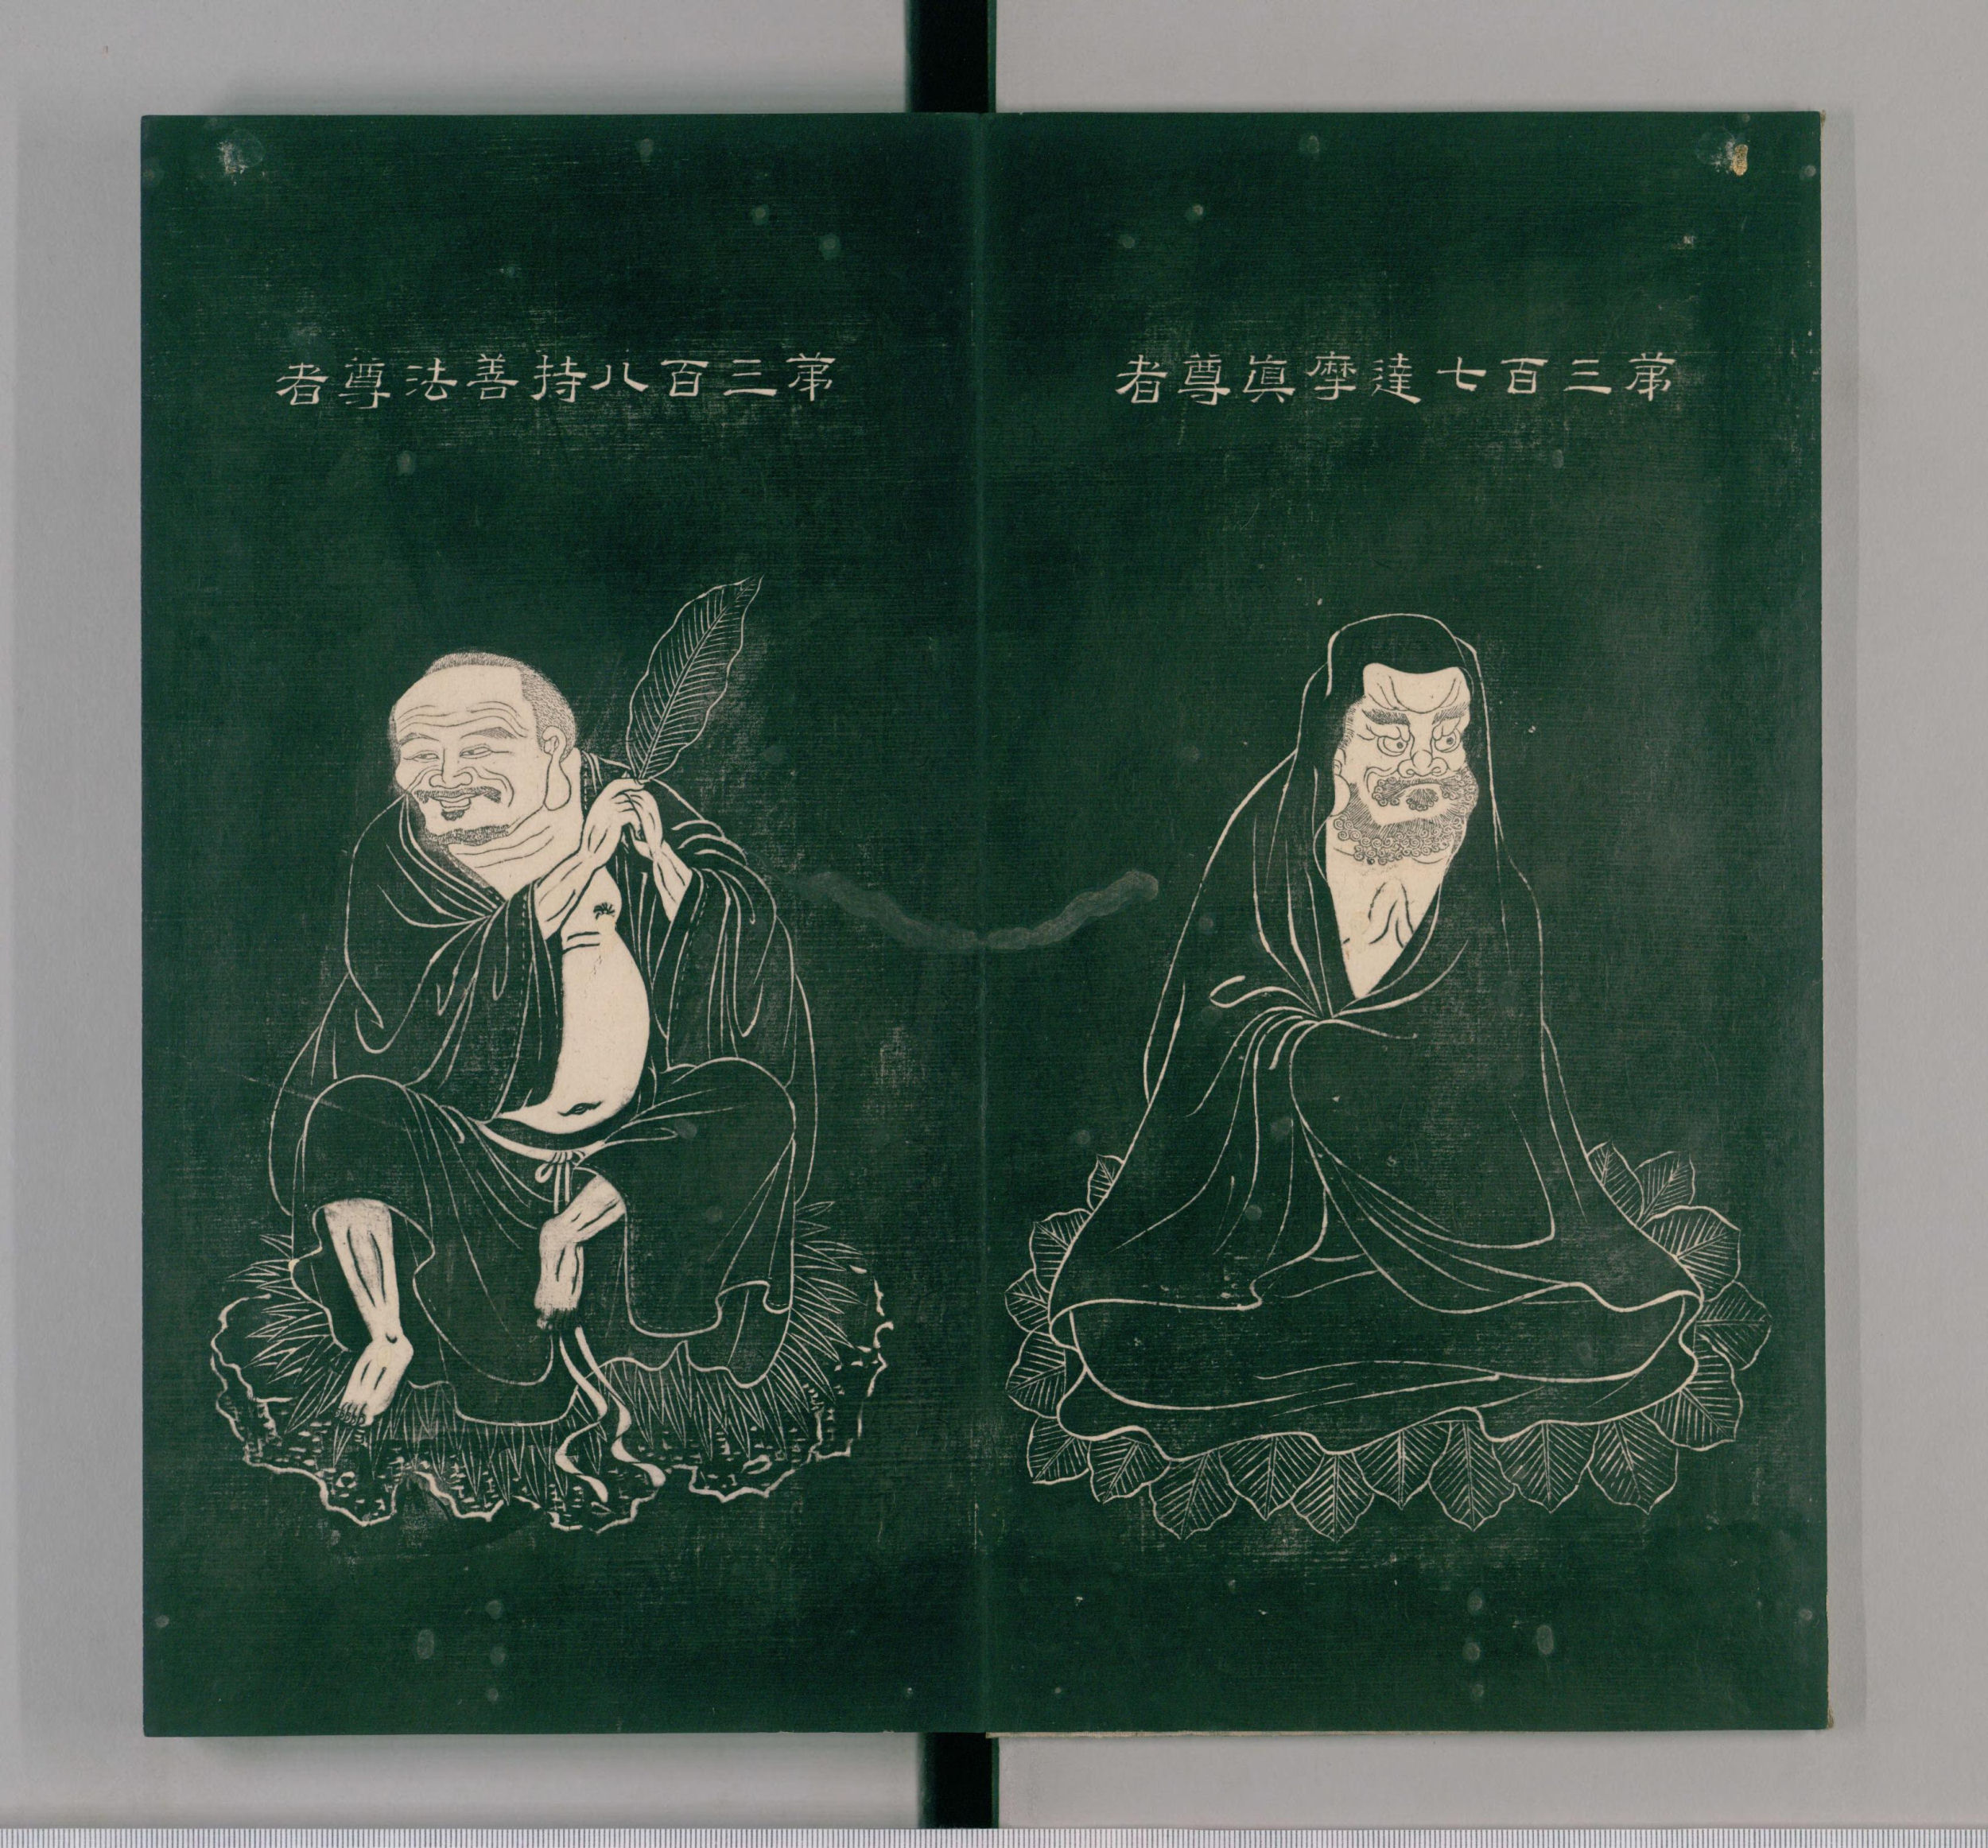 第三百七達摩真尊者
第三百八持善法尊者